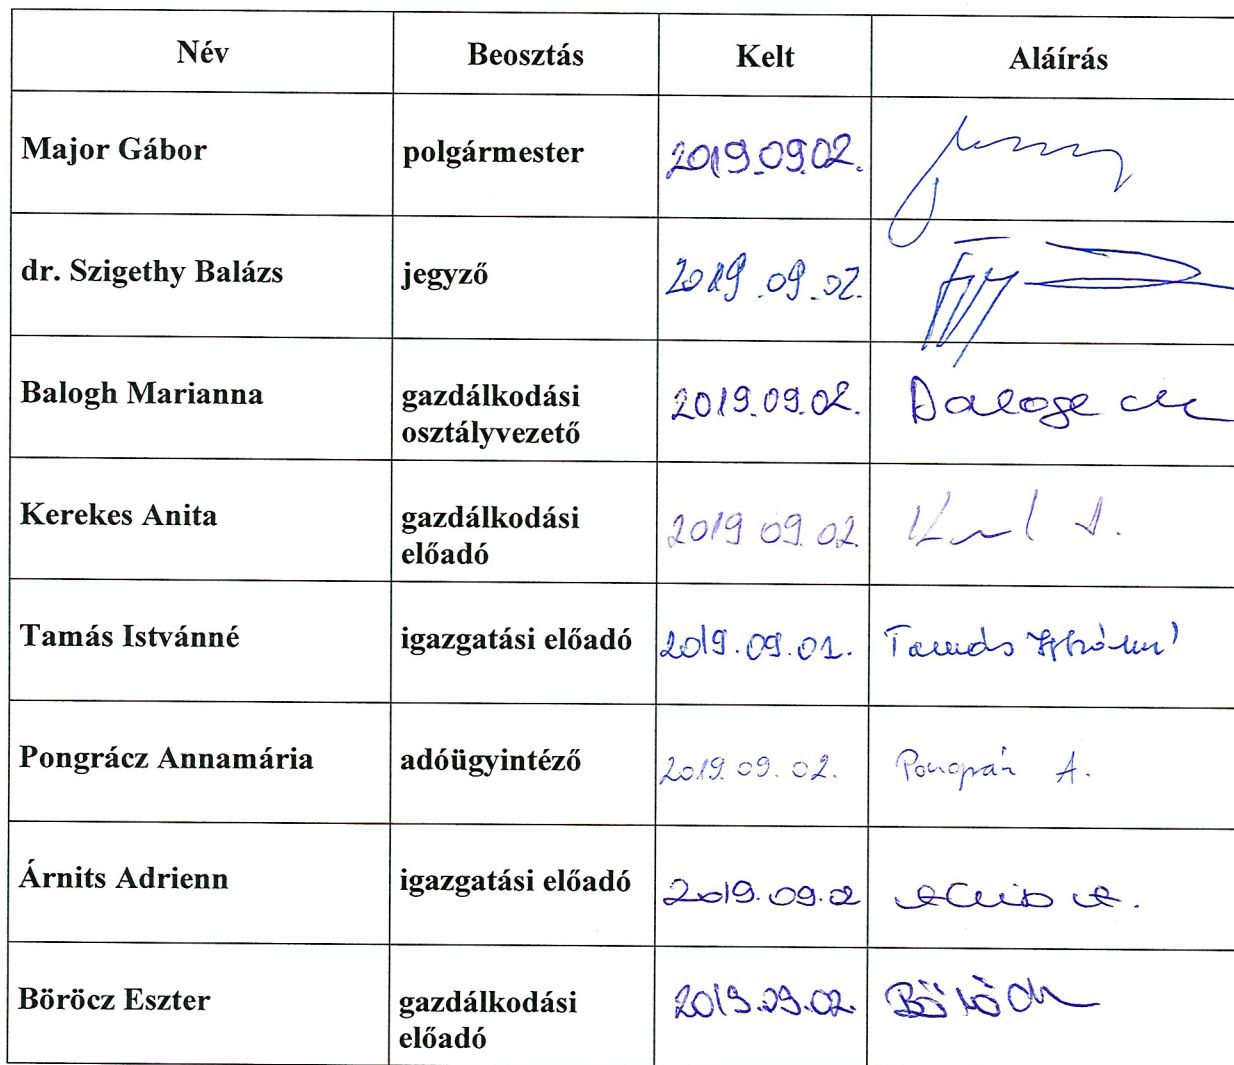 Név Beosztás Kelt Aláírás
Major Gábor polgármester 2019.09.02.
dr. Szigethy Balázs jegyző 2019.09.02.
Balogh Marianna gazdálkodási 2019.09.02.
osztályvezető
Kerekes Anita gazdálkodási 2019 09.02.
előadó
Tamás Istvánné igazgatási előadó 2019.09.02. Tamás Istvánné
Pongrácz Annamária adóügyintéző 2019.09.02. Pongrácz A.
Árnits Adrienn igazgatási előadó 2019.09.02
Böröcz Eszter gazdálkodási 2019.09.02.
előadó